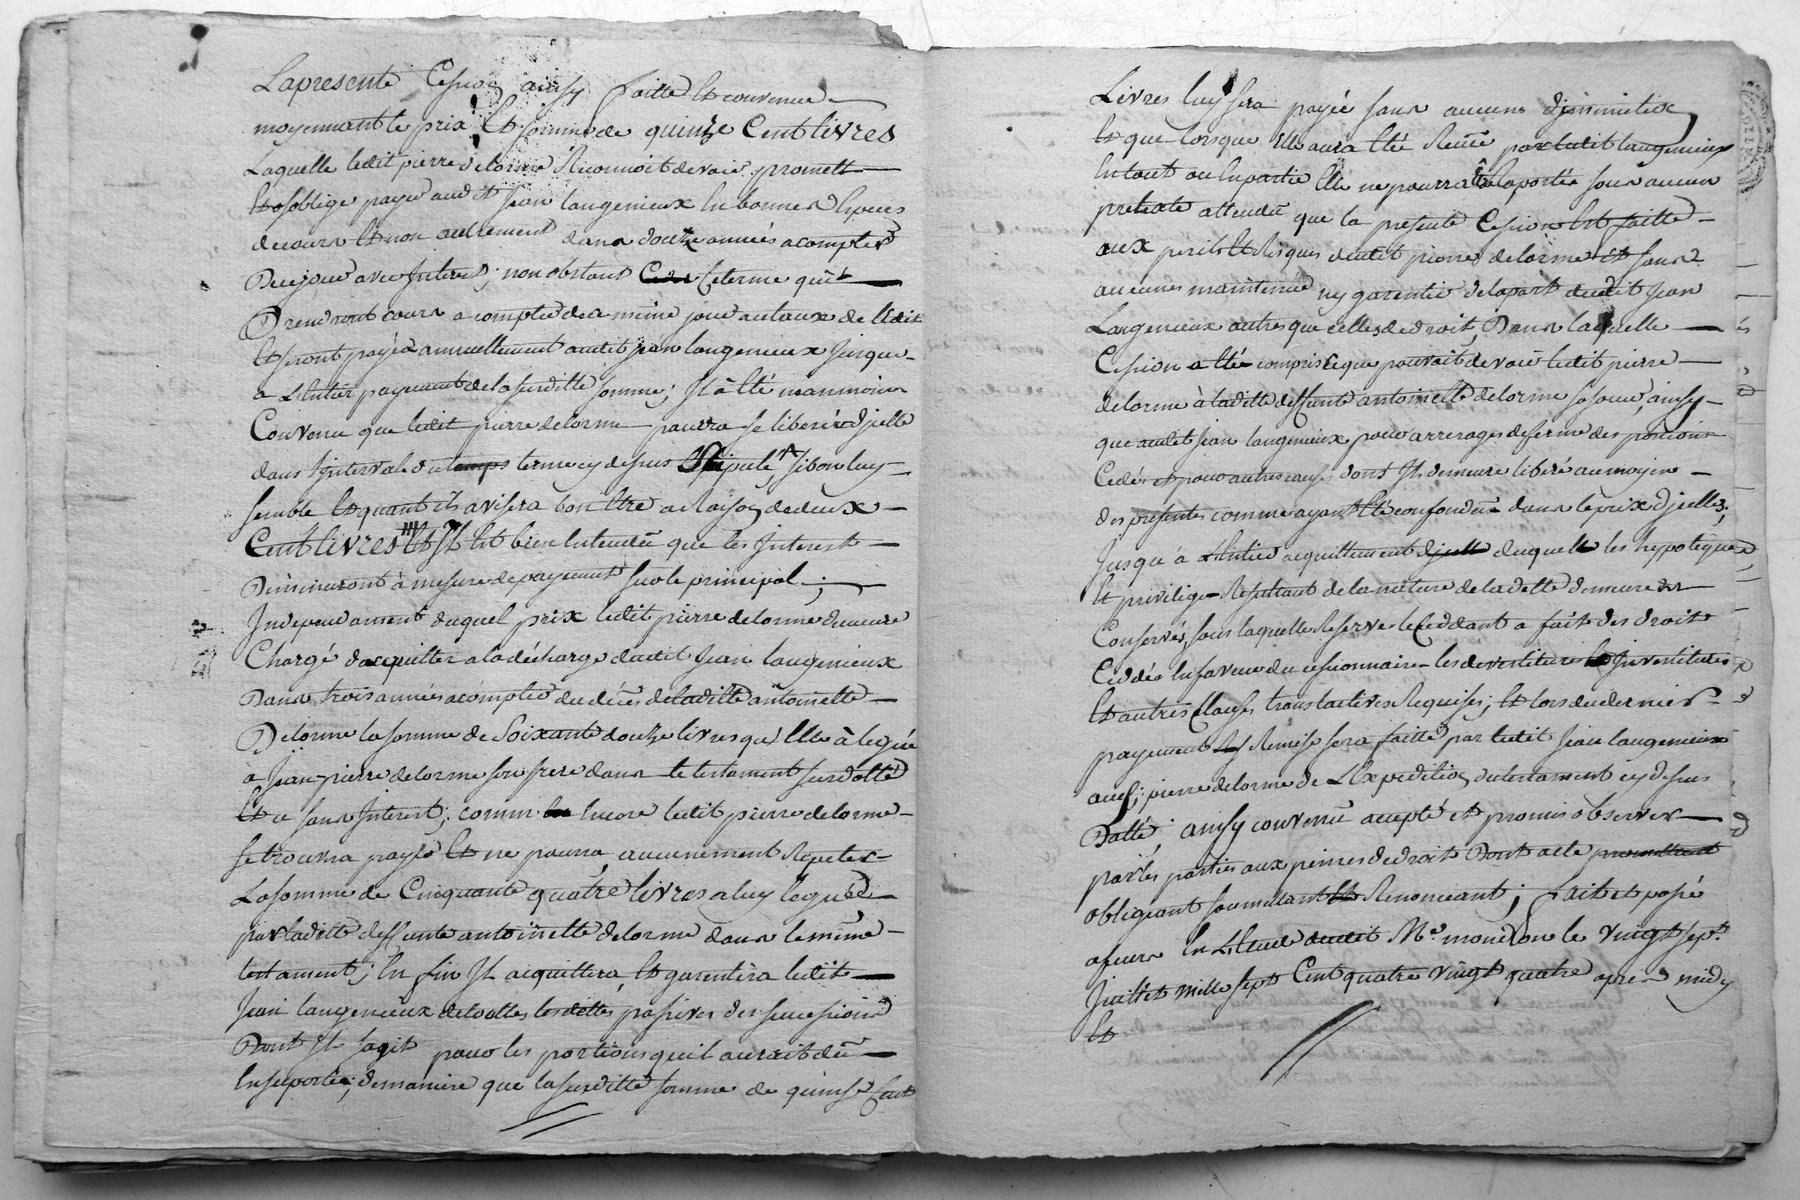 La presente Cession ainsy faitte Et convenue
moyennant le prix Et somme de quinze Cent livres
Laquelle ledit pierre delorme Reconnoit devoir promett
Et s'oblige payer audit Jean laugenieux En bonnes Especes
de cours Et non autrement dans douze années a compter
De ce jour avec Interest; nonobstant Ce terme qui
Prendront cours a compter de ce même jour au taux de l'Edit
Et seront payés annuellement audit jean laugenieux jusques
a L'Entier payement de la susditte somme; Il a Eté neanmoins
Convenu que ledit pierre delorme pourra se liberer d'jcelle
dans l'jnterval du temps terme cy dessus stipulé, si bon luy
semble Et quant il avisera bon Etre a Raison de deux
Cent livres Et Il Est bien Entendu que les Interest
Diminueront à mesure de payement sur le principal;
Independament duquel prix ledit pierre delorme demeure
Chargé d'acquitter a la décharge dudit Jean laugenieux
Dans trois années a compter du décés de laditte antoinette
Delorme la somme de Soixante douze livres qu'Elle à legué
à Jean-pierre delorme son frere dans le testament susdatté
Et ce sans Interest; comm Encore ledit pierre delorme
se trouvera payé Et ne pourra aucunement Repeter
La somme de Cinquante quatre livres a luy legué
par laditte deffunte antoinette delorme dans le même
testament; En fin Il acquittera, Et garentira ledit
Jean laugenieux de touttes les dettes passives des successions
Dont Il sagit pour les portions quil auroit dû
En suporter; de maniere que la susditte somme de quinze Cent
Livres luy sera payée sans aucune diminution
Et que lorsque Elle aura Eté Reçue par ledit laugenieux
En tout ou En partie Elle ne pourra Etre raportée sous aucun
pretexte attendu que la presente Cession Est faitte
aux perils Et Risques dudit pierre delorme Et sans
aucunes maintenue ny garentie de la part dudit Jean
Laugenieux autres que celles de droit, Dans laquelle
Cession a Eté compris ce que pouvoit devoir ledit pierre
delorme à laditte deffunte antoinette delorme sa soeur, ainsy
que audit Jean laugenieux pour arrerages de ferme des portions
Cedés et pour autres causes dont Il demeure liberé au moyen
des presentes comme ayant Eté confondu dans le prix d'jcelles;
Jusqu'à L'Entier acquittement duquel les hypoteques
Et privilege Resultant de la nature de la dette demeurent
Conservés, sous laquelle Reserve le Ceddant a fait des droits
Ceddés En faveur du cessionnaire les devestitures Investitures
Et autres Clauses translatives Requises; Et lors du dernier
payement Remise sera faitte par ledit Jean laugenieux
audit pierre delorme de L'Expedition du testament cy dessus
Datté, ainsy convenu accepté et promis observer
par les parties aux peines de droit Dont acte promettant
obligeant soumettant Et Renonceant; fait et passé
a feurs En L'Etude dudit Me moudon le vingt sept
Juillet mille sept Cent quatre vingt quatre apres midy
Et